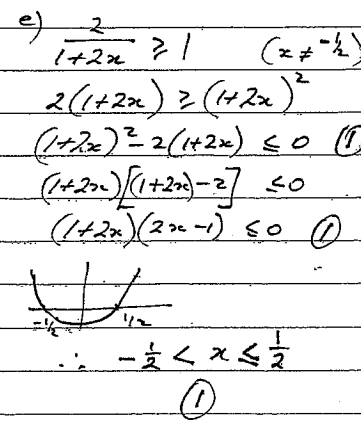 e) 2/(1+2x) ≥ 1 (x ≠ -1/2)
2(1+2x) ≥ (1+2x)²
(1+2x)² - 2(1+2x) ≤ 0 ①
(1+2x)[(1+2x)-2] ≤ 0
(1+2x)(2x-1) ≤ 0 ①
-1/2 1/2
∴ -1/2 < x ≤ 1/2
①